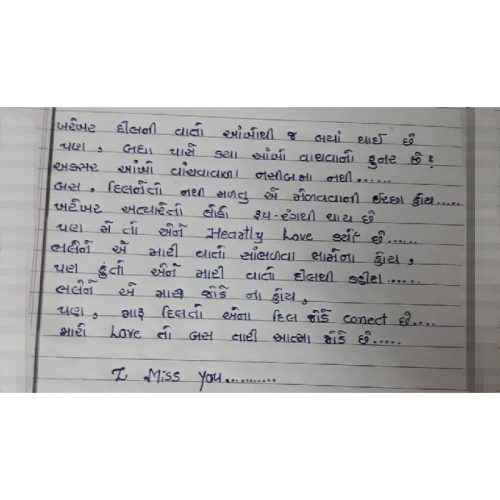 ખરેખર દીલની વાતો આંખોથી જ બયાં થાઈ છે
પણ, બધા પાસે ક્યા આંખો વાંચવાનો હુનર છે?
અક્સર આંખો વાંચવાવાળા નસીબમા નથી......
બસ, દિલનેતો નથી મળતુ એ મેળવવાની ઈચ્છા હોય.....
ખરેખર અત્યારેતો લોકો રૂપ-રંગથી થાય છે
પણ મેં તો એને Heartly Love કર્યો છે.....
ભલેને એ મારી વાતો સાંભળવા સામેના હોય,
પણ હુંતો એને મારી વાતો દીલથી કહીશ.....
ભલેને એ મારી જોડે ના હોય,
પણ, મારૂ દિલતો એના દિલ જોડે conect છે....
મારો Love તો બસ તારી આત્મા જોડે છે.....
I Miss you..........